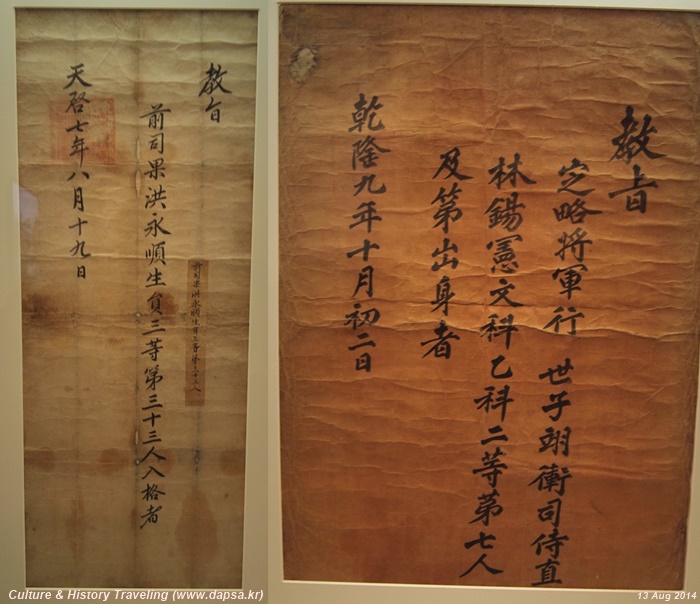 教旨
前司果洪永順生員三等第三十三人入格者
天啓七年八月十九日
前司果洪永順生員三等第三十三人
教旨
定略將軍行 世子翊衛司侍直
林錫憲文科乙科二等第七人
及第出身者
乾隆九年十月初二日
Culture & History Traveling (www.dapsa.kr)
13 Aug 2014